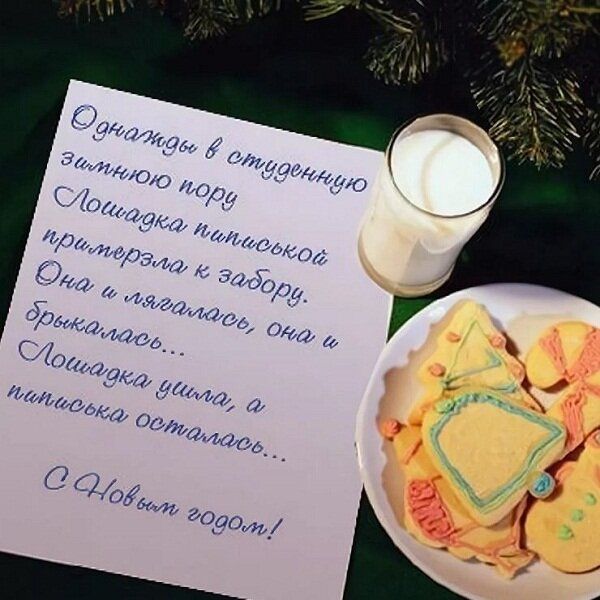 Однажды в студенную
зимнюю пору
Лошадка пиписькой
примерзла к забору.
Она и лягалась, она и
брыкалась...
Лошадка ушла, а
пиписька осталась...
С Новым годом!